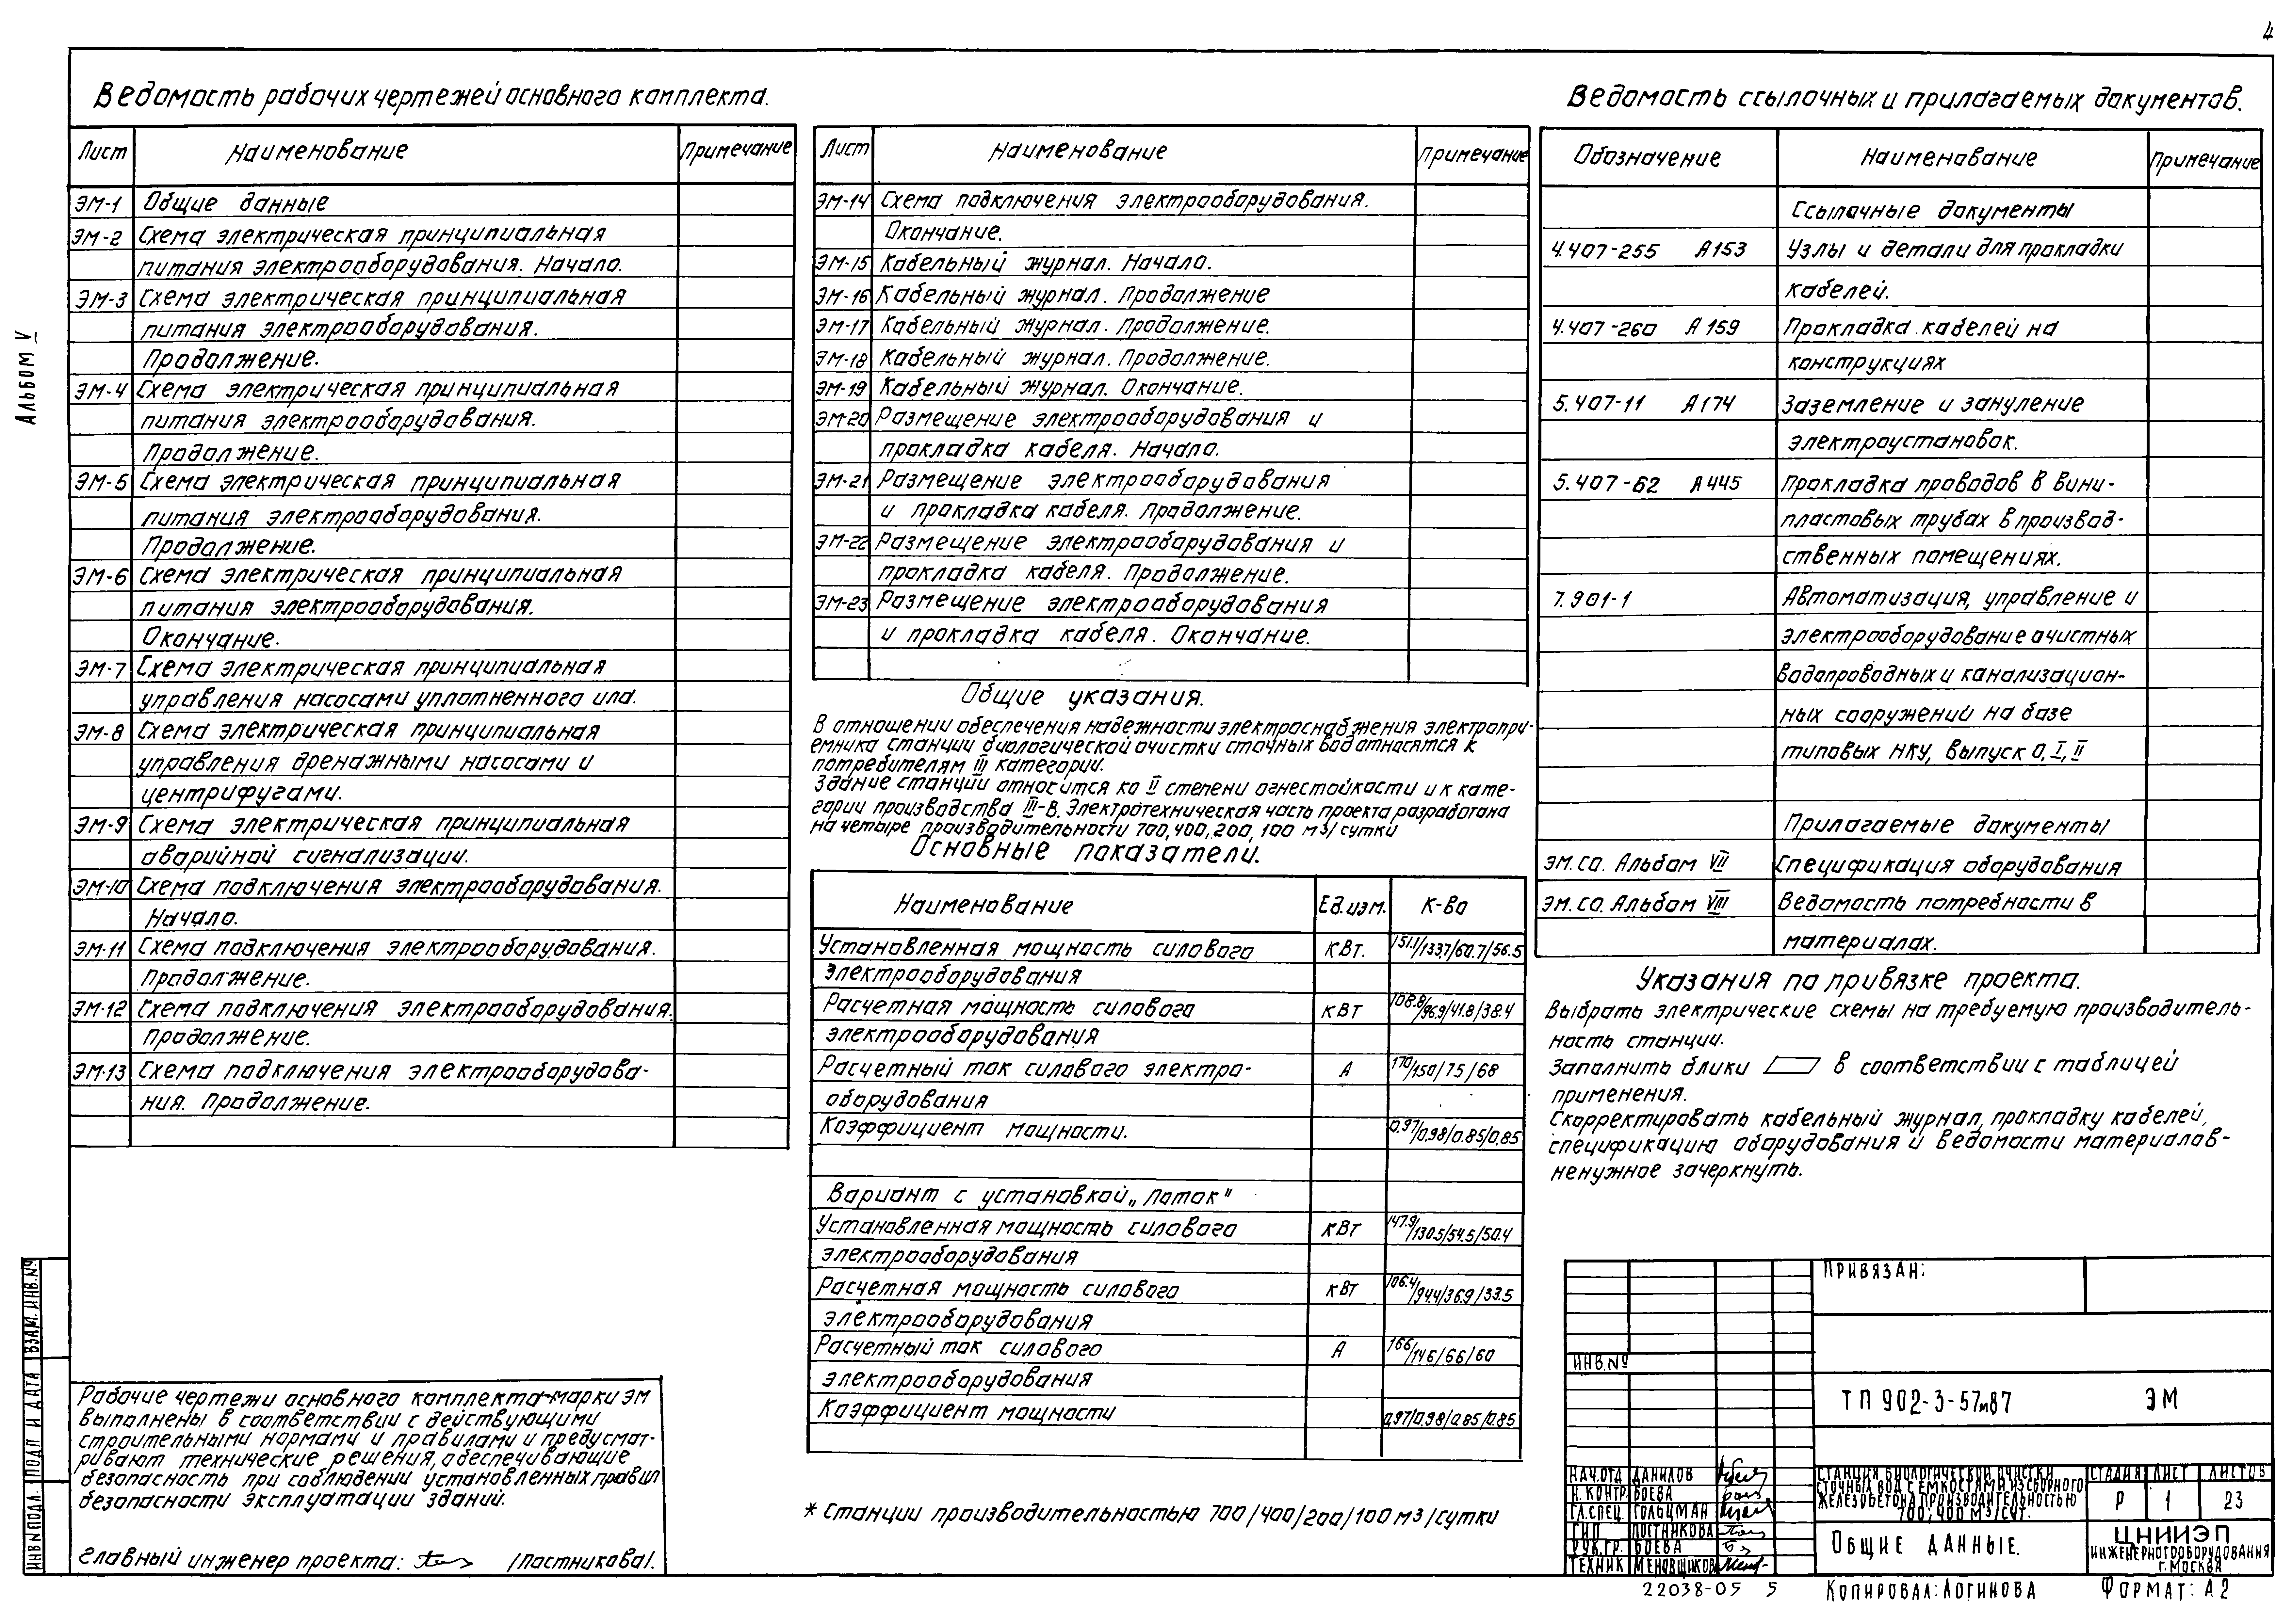 4
Альбом V
Ведомость рабочих чертежей основного комплекта.
Лист Наименование Примечание
ЭМ-1 Общие данные
ЭМ-2 Схема электрическая принципиальная
питания электрооборудования. Начало.
ЭМ-3 Схема электрическая принципиальная
питания электрооборудования.
Продолжение.
ЭМ-4 Схема электрическая принципиальная
питания электрооборудования.
Продолжение.
ЭМ-5 Схема электрическая принципиальная
питания электрооборудования.
Продолжение.
ЭМ-6 Схема электрическая принципиальная
питания электрооборудования.
Окончание.
ЭМ-7 Схема электрическая принципиальная
управления насосами уплотненного ила.
ЭМ-8 Схема электрическая принципиальная
управления дренажными насосами и
центрифугами.
ЭМ-9 Схема электрическая принципиальная
аварийной сигнализации.
ЭМ-10 Схема подключения электрооборудования.
Начало.
ЭМ-11 Схема подключения электрооборудования.
Продолжение.
ЭМ-12 Схема подключения электрооборудования.
Продолжение.
ЭМ-13 Схема подключения электрооборудова-
ния. Продолжение.
Рабочие чертежи основного комплекта марки ЭМ
выполнены в соответствии с действующими
строительными нормами и правилами и предусмат-
ривают технические решения, обеспечивающие
безопасность при соблюдении установленных правил
безопасности эксплуатации зданий.
Главный инженер проекта: /Постникова/.
Лист Наименование Примечание
ЭМ-14 Схема подключения электрооборудования.
Окончание.
ЭМ-15 Кабельный журнал. Начало.
ЭМ-16 Кабельный журнал. Продолжение
ЭМ-17 Кабельный журнал. Продолжение.
ЭМ-18 Кабельный журнал. Продолжение.
ЭМ-19 Кабельный журнал. Окончание.
ЭМ-20 Размещение электрооборудования и
прокладка кабеля. Начало.
ЭМ-21 Размещение электрооборудования
и прокладка кабеля. Продолжение.
ЭМ-22 Размещение электрооборудования и
прокладка кабеля. Продолжение.
ЭМ-23 Размещение электрооборудования
и прокладка кабеля. Окончание.
Общие указания.
В отношении обеспечения надежности электроснабжения электропри-
емника станции биологической очистки сточных вод относятся к
потребителям III категории.
Здание станции относится ко II степени огнестойкости и к кате-
гории производства III-В. Электротехническая часть проекта разработана
на четыре производительности 700, 400, 200, 100 м3/сутки
Основные показатели.
Наименование Ед.изм. К-во
Установленная мощность силового кВт. 151.1/133.7/60.7/56.5
электрооборудования
Расчетная мощность силового кВт 108.8/96.9/41.8/38.4
электрооборудования
Расчетный ток силового электро- А 170/150/75/68
оборудования
Коэффициент мощности. 0.97/0.98/0.85/0.85
Вариант с установкой „Поток"
Установленная мощность силового кВт 147.9/130.5/54.5/50.4
электрооборудования
Расчетная мощность силового кВт 106.4/94.4/36.9/33.5
электрооборудования
Расчетный ток силового А 166/146/66/60
электрооборудования
Коэффициент мощности 0.97/0.98/0.85/0.85
* Станции производительностью 700/400/200/100 м3/сутки
Ведомость ссылочных и прилагаемых документов.
Обозначение Наименование Примечание
Ссылочные документы
4.407-255 А153 Узлы и детали для прокладки
кабелей.
4.407-260 А159 Прокладка кабелей на
конструкциях
5.407-11 А174 Заземление и зануление
электроустановок.
5.407-62 А445 Прокладка проводов в вини-
пластовых трубах в производ-
ственных помещениях.
7.901-1 Автоматизация, управление и
электрооборудование очистных
водопроводных и канализацион-
ных сооружений на базе
типовых НКУ, выпуск 0, I, II
Прилагаемые документы
ЭМ.СО. Альбом VII Спецификация оборудования
ЭМ.СО. Альбом VIII Ведомость потребности в
материалах.
Указания по привязке проекта.
Выбрать электрические схемы на требуемую производитель-
ность станции.
Заполнить блики в соответствии с таблицей
применения.
Скорректировать кабельный журнал, прокладку кабелей,
спецификацию оборудования и ведомости материалов-
ненужное зачеркнуть.
Привязан:
Инв.№
ТП 902-3-57м87 ЭМ
Нач.отд Данилов
Н.контр. Боева
Гл.спец. Гольцман
ГИП Постникова
Рук.гр. Боева
Техник Меновщикова
Станция биологической очистки
сточных вод с емкостями из сборного
железобетона производительностью
700; 400 м3/сут.
Стадия Лист Листов
Р 1 23
Общие данные.
ЦНИИЭП
инженерного оборудования
г. Москва
22038-05 5
Копировал: Логинова
Формат: А2
Инв № подл. Подп и дата Взам. инв.№